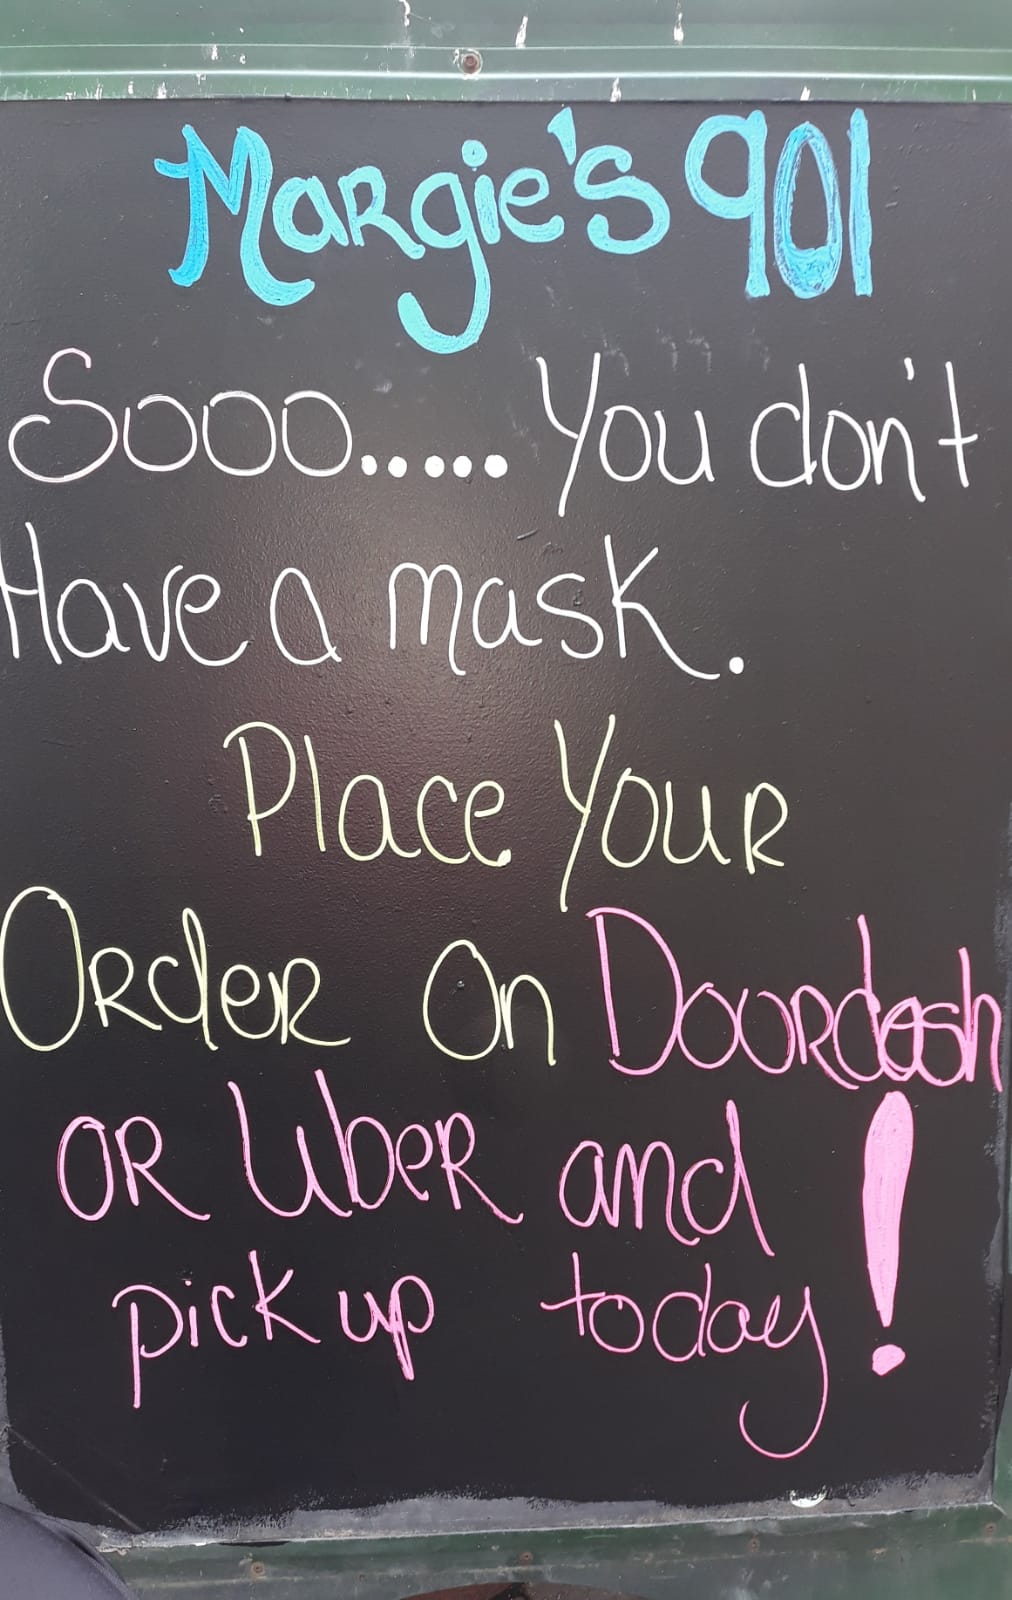 Margie's 901
Sooo..... You don't
Have a mask.
Place Your
Order On Doordash
OR Uber and
pick up today!